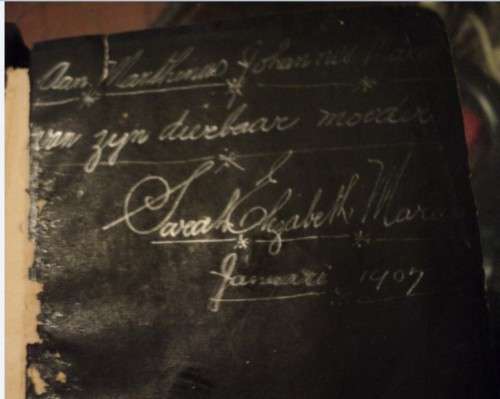 Aan Marthinus Johannes
van zijn dierbaar moeder
Sarah Elizabeth
Januari 1907